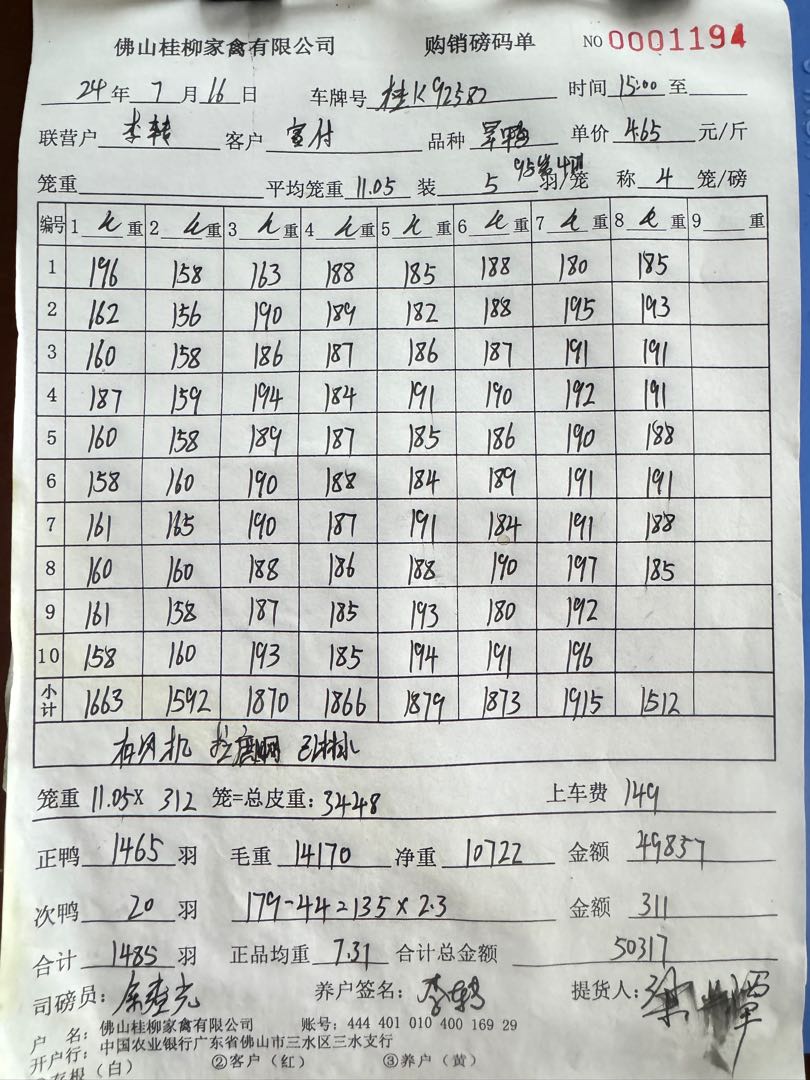 佛山桂柳家禽有限公司 购销磅码单 NO 0001194
24年 7月 16日 车牌号 桂K92582 时间 15:00 至
联营户 李转 客户 富付 品种 单价 4.65 元/斤
笼重 平均笼重 11.05 装 5 羽/笼 称 4 笼/磅
编号 1 重 2 重 3 重 4 重 5 重 6 重 7 重 8 重 9 重
1 196 158 163 188 185 188 180 185
2 162 156 190 189 182 188 195 193
3 160 158 186 187 186 187 191 191
4 187 159 194 184 191 190 192 191
5 160 158 189 187 185 186 190 188
6 158 160 190 188 184 189 191 191
7 161 165 190 187 191 184 191 188
8 160 160 188 186 188 190 197 185
9 161 158 187 185 193 180 192
10 158 160 193 185 194 191 196
小计 1663 1592 1870 1866 1879 1873 1915 1512
笼重 11.05 X 312 笼=总皮重: 3448 上车费 149
正鸭 1465 羽 毛重 14170 净重 10722 金额 49857
次鸭 20 羽 179-44=135×2.3 金额 311
合计 1485 羽 正品均重 7.31 合计总金额 50317
司磅员: 养户签名: 李转 提货人:
户 名: 佛山桂柳家禽有限公司 账号: 444 401 010 400 169 29
开户行: 中国农业银行广东省佛山市三水区三水支行
存根(白) ②客户(红) ③养户(黄)